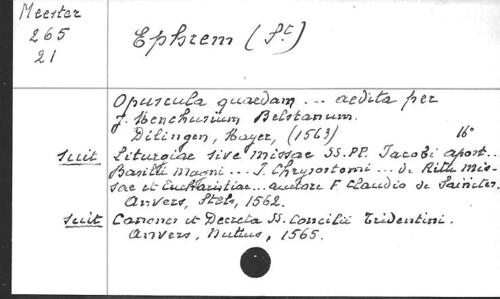 Meester
265
21
Ephrem (St)
Opuscula quaedam ... aedita per
J. Henchusium Belstanum.
Dilingen, Mayer, (1563) 16°
suit Liturgiae sive missae SS.PP. Jacobi apost...
Basilii magni... J. Chrysostomi ... de Ritu Mis-
sae et Eucharistiae... auctore F. Claudio de Sainctes.
Anvers, Stels, 1562.
suit Canones et Decreta SS. Concilii Tridentini.
Anvers, Nutius, 1565.